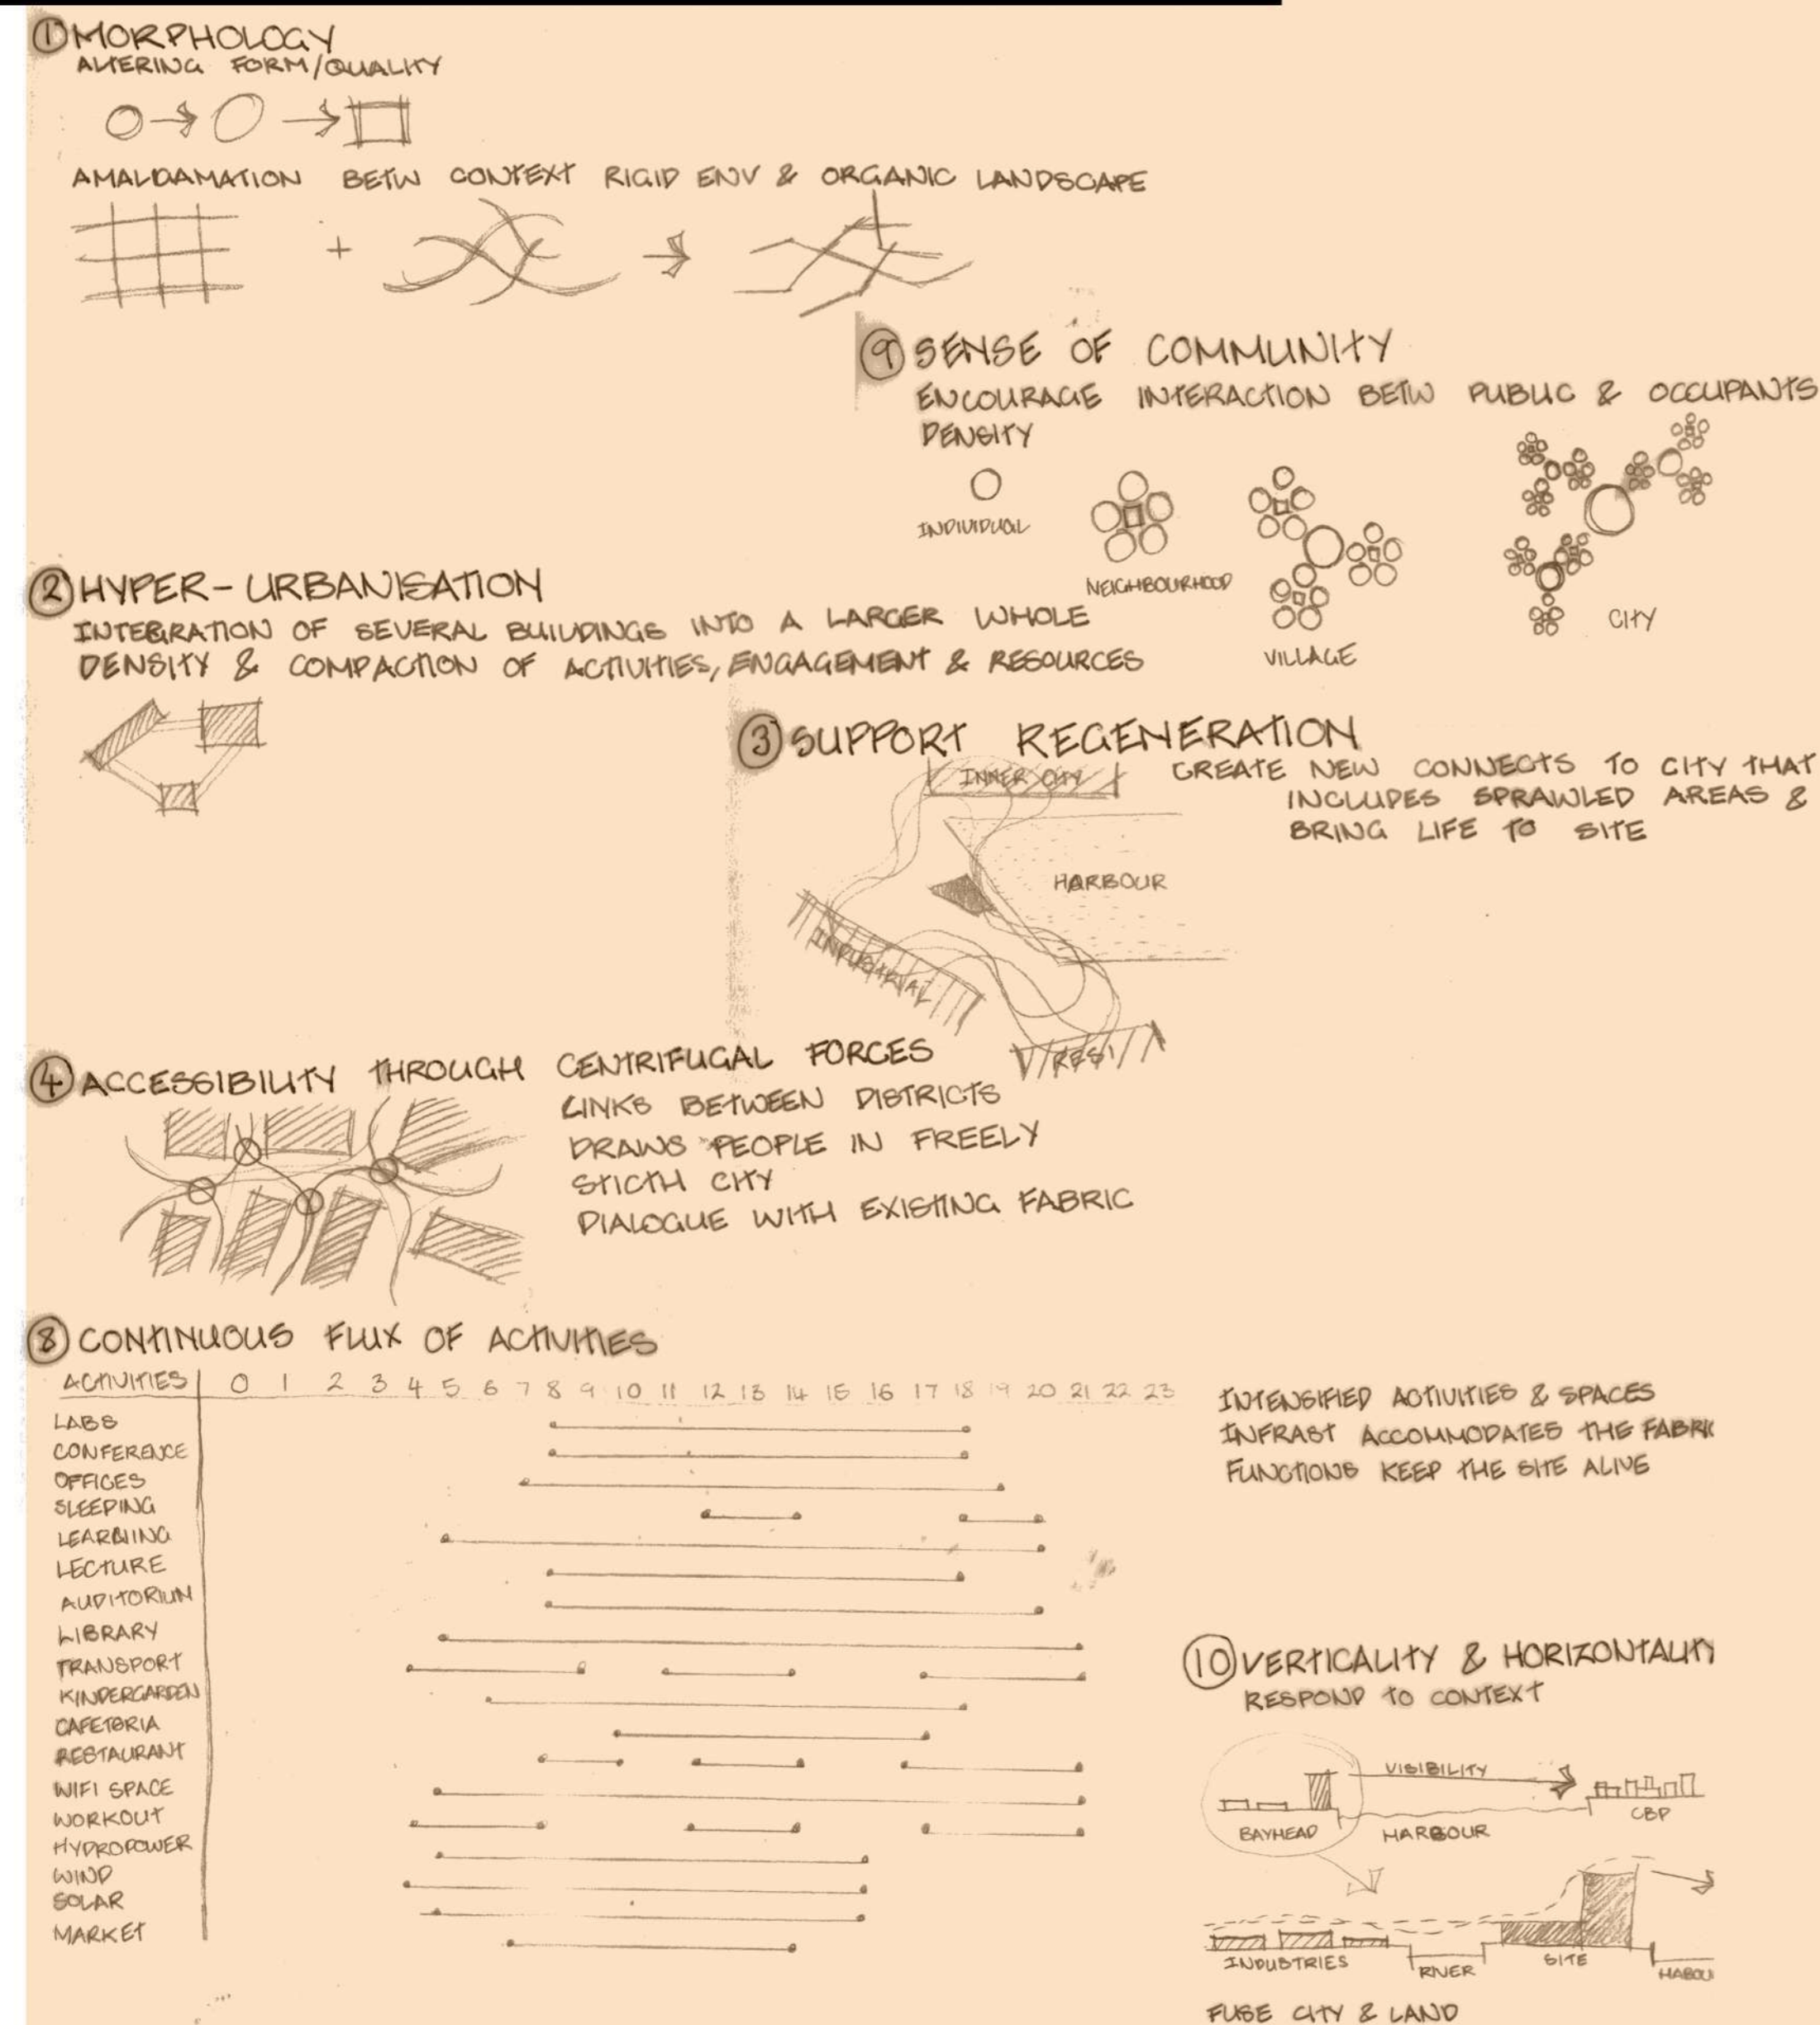 ① MORPHOLOGY
ALTERING FORM/QUALITY
AMALGAMATION BETW CONTEXT RIGID ENV & ORGANIC LANDSCAPE
+
⑨ SENSE OF COMMUNITY
ENCOURAGE INTERACTION BETW PUBLIC & OCCUPANTS
DENSITY
INDIVIDUAL
NEIGHBOURHOOD
VILLAGE
CITY
② HYPER-URBANISATION
INTEGRATION OF SEVERAL BUILDINGS INTO A LARGER WHOLE
DENSITY & COMPACTION OF ACTIVITIES, ENGAGEMENT & RESOURCES
③ SUPPORT REGENERATION
CREATE NEW CONNECTS TO CITY THAT
INCLUDES SPRAWLED AREAS &
BRING LIFE TO SITE
INNER CITY
HARBOUR
INDUSTRIAL
RESI
④ ACCESSIBILITY THROUGH CENTRIFUGAL FORCES
LINKS BETWEEN DISTRICTS
DRAWS PEOPLE IN FREELY
STICTH CITY
DIALOGUE WITH EXISTING FABRIC
⑧ CONTINUOUS FLUX OF ACTIVITIES
ACTIVITIES 0 1 2 3 4 5 6 7 8 9 10 11 12 13 14 15 16 17 18 19 20 21 22 23
LABS
CONFERENCE
OFFICES
SLEEPING
LEARNING
LECTURE
AUDITORIUM
LIBRARY
TRANSPORT
KINDERGARDEN
CAFETERIA
RESTAURANT
WIFI SPACE
WORKOUT
HYDROPOWER
WIND
SOLAR
MARKET
INTENSIFIED ACTIVITIES & SPACES
INFRAST ACCOMMODATES THE FABRIC
FUNCTIONS KEEP THE SITE ALIVE
⑩ VERTICALITY & HORIZONTALITY
RESPOND TO CONTEXT
VISIBILITY
BAYHEAD
HARBOUR
CBD
INDUSTRIES
RIVER
SITE
HABOU
FUSE CITY & LAND